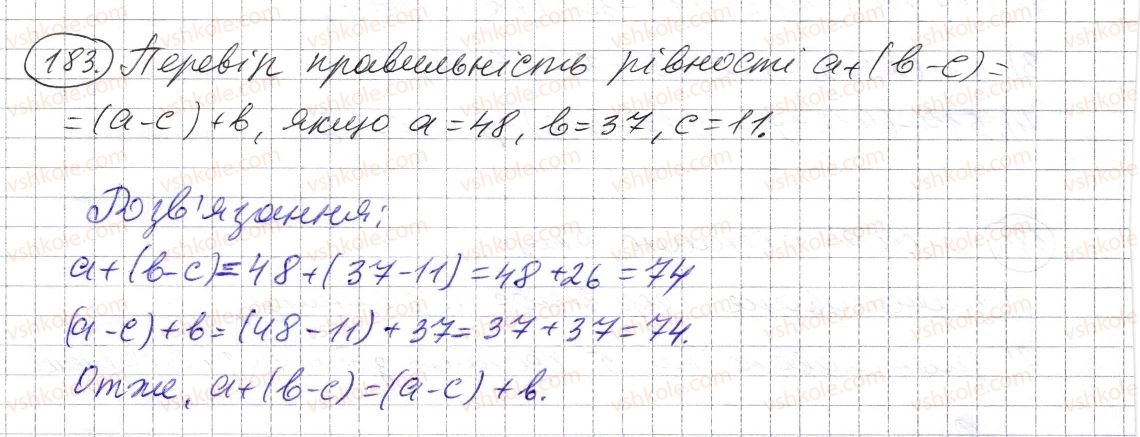 183. Перевір правильність рівності a+(b-c)=
=(a-c)+b, якщо a=48, b=37, c=11.
Розв'язання:
a+(b-c)=48+(37-11)=48+26=74
(a-c)+b=(48-11)+37=37+37=74.
Отже, a+(b-c)=(a-c)+b.